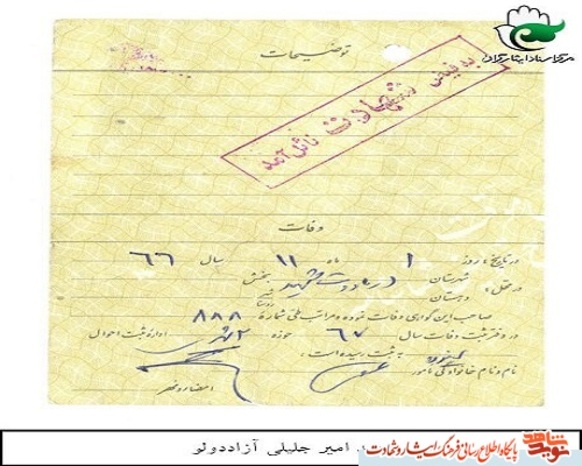 مرکز اسناد ایثارگران
توضیحات
به فیض شهادت نائل آمد
وفات
در تاریخ روز ۱ ماه ۱۱ سال ۶۶
در محل شهرستان بخش
دهستان
صاحب این گواهی وفات نموده و مراتب طی شماره ۸۸۸
در دفتر ثبت وفات سال ۶۷ حوزه ۲ اداره ثبت احوال
به ثبت رسیده است.
نام و نام خانوادگی مأمور
امضاء و مهر
امیر جلیلی آزاددولو
نوید شاهد
پایگاه اطلاع رسانی فرهنگ ایثار و شهادت